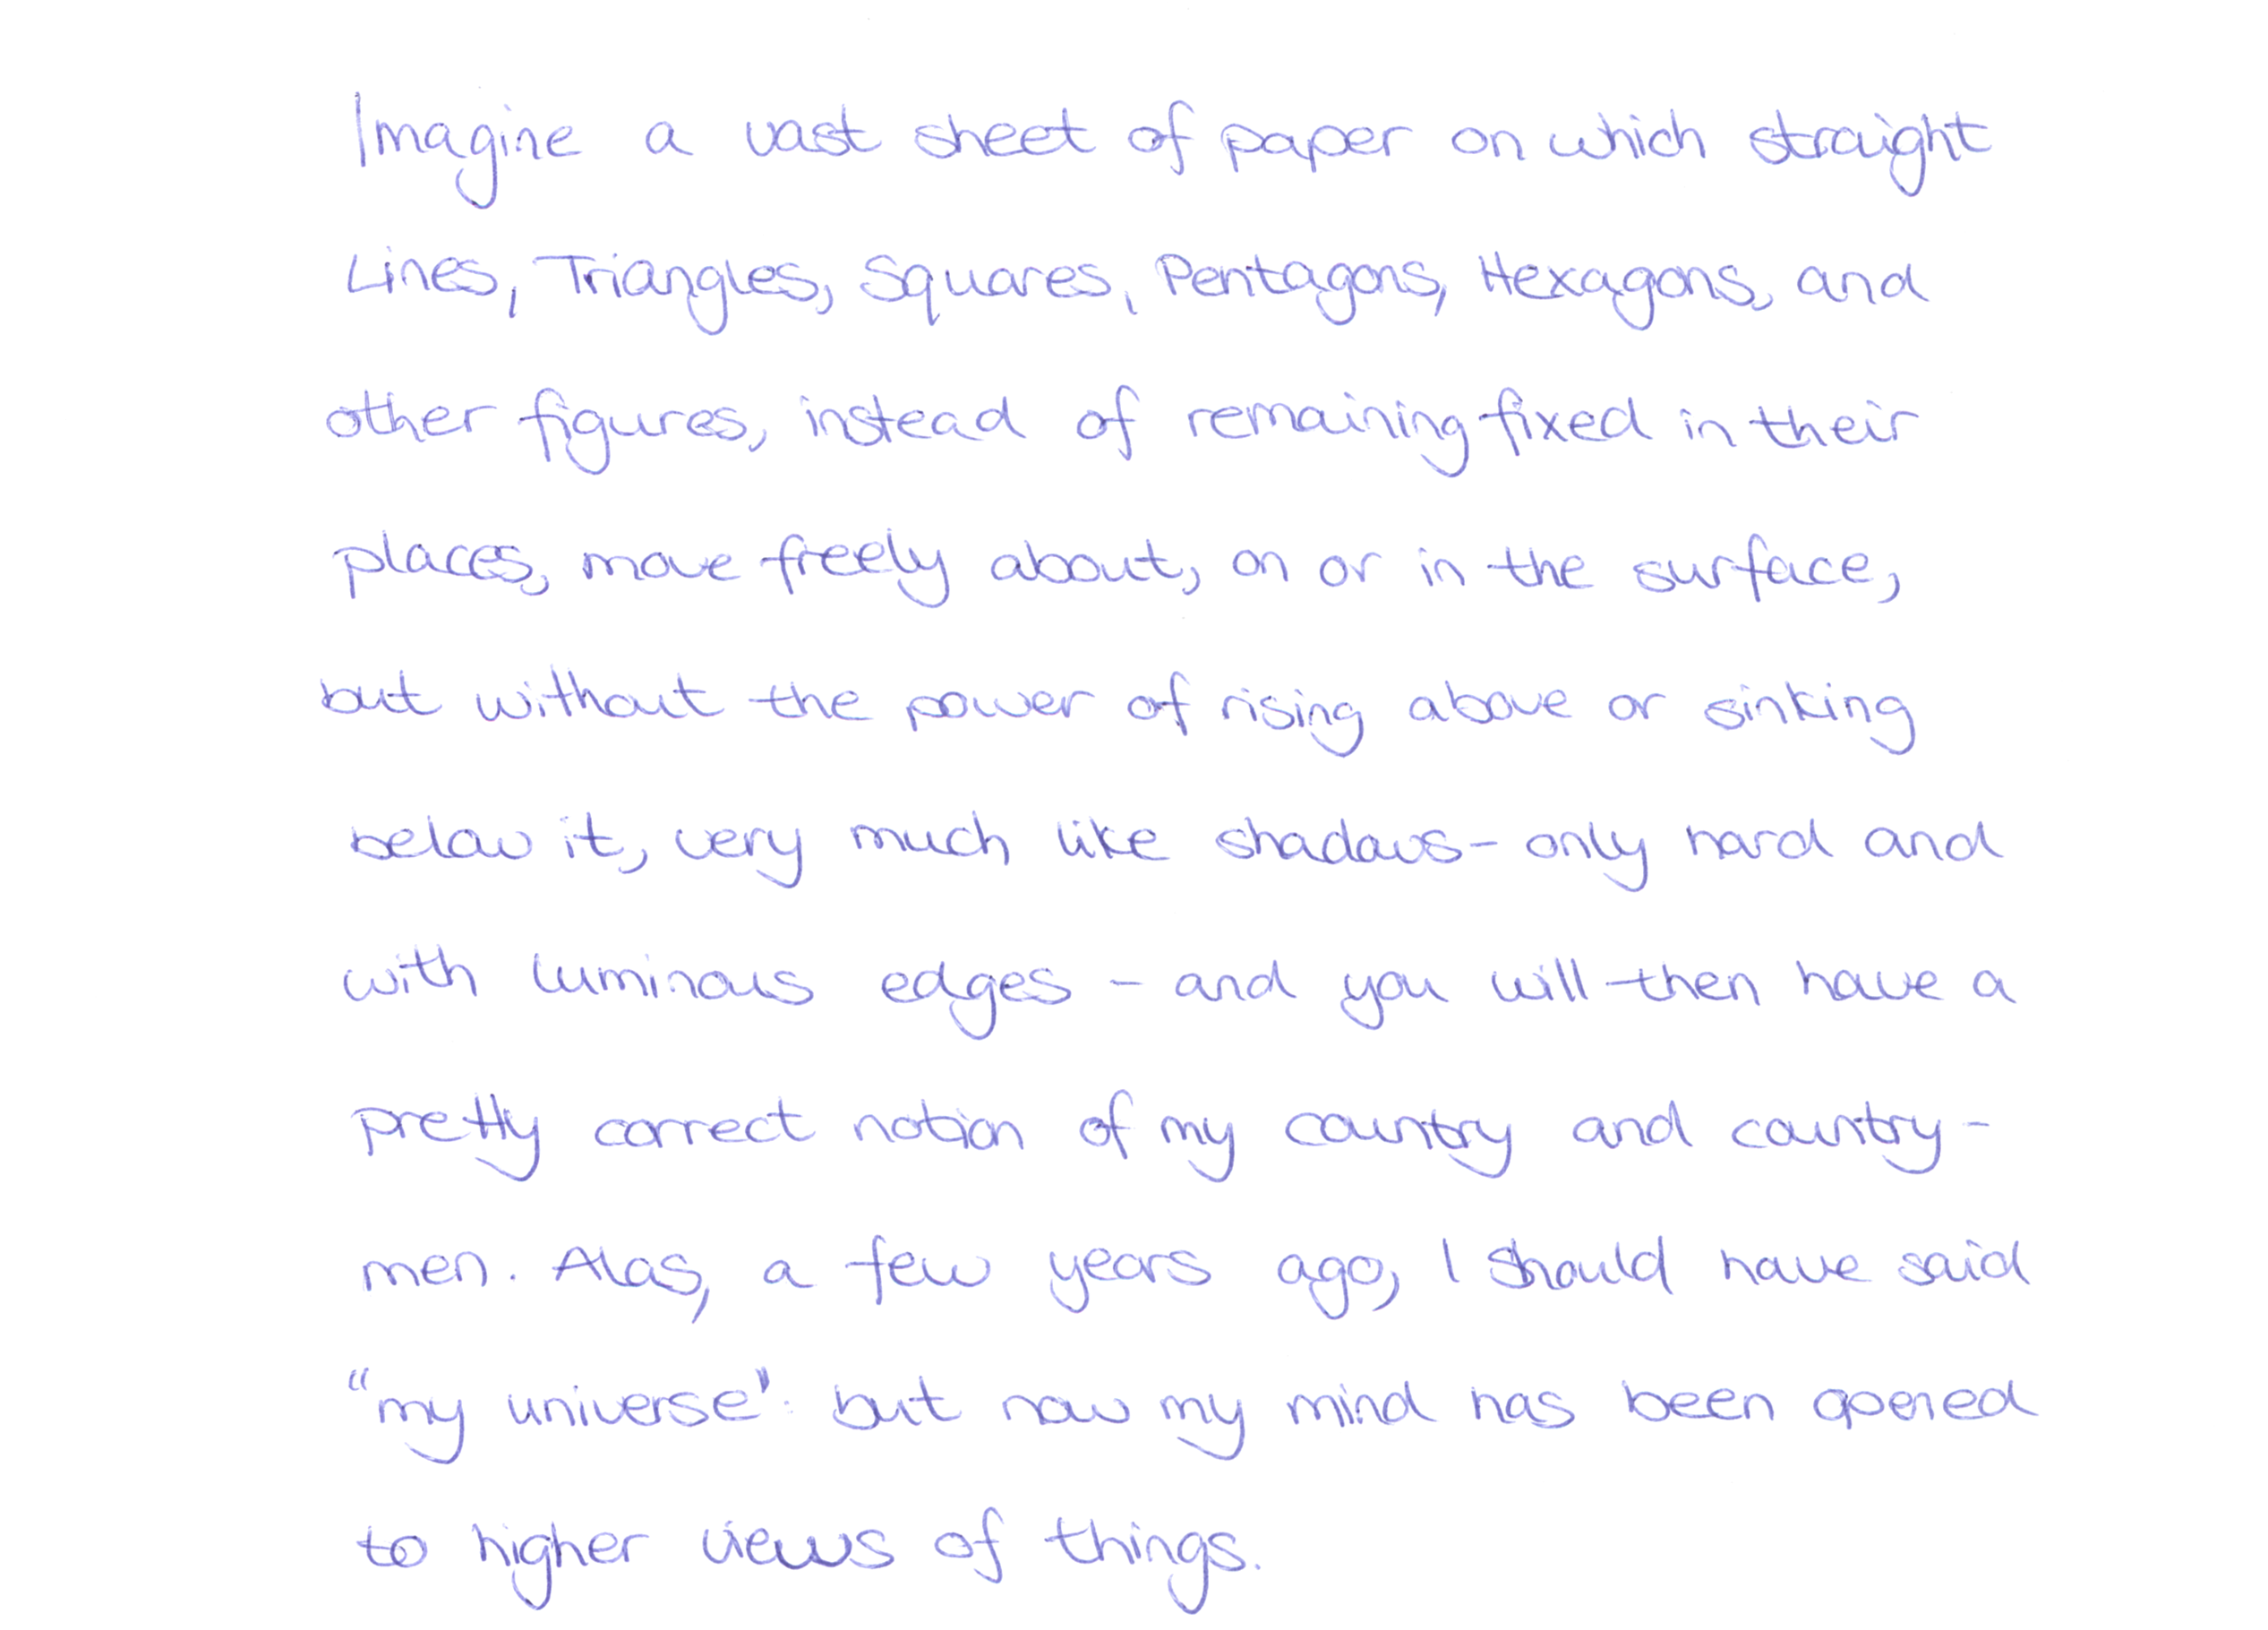 Imagine a vast sheet of paper on which straight
Lines, Triangles, Squares, Pentagons, Hexagons, and
other figures, instead of remaining fixed in their
places, move freely about, on or in the surface,
but without the power of rising above or sinking
below it, very much like shadows - only hard and
with luminous edges - and you will then have a
pretty correct notion of my country and country-
men. Alas, a few years ago, I should have said
“my universe": but now my mind has been opened
to higher views of things.